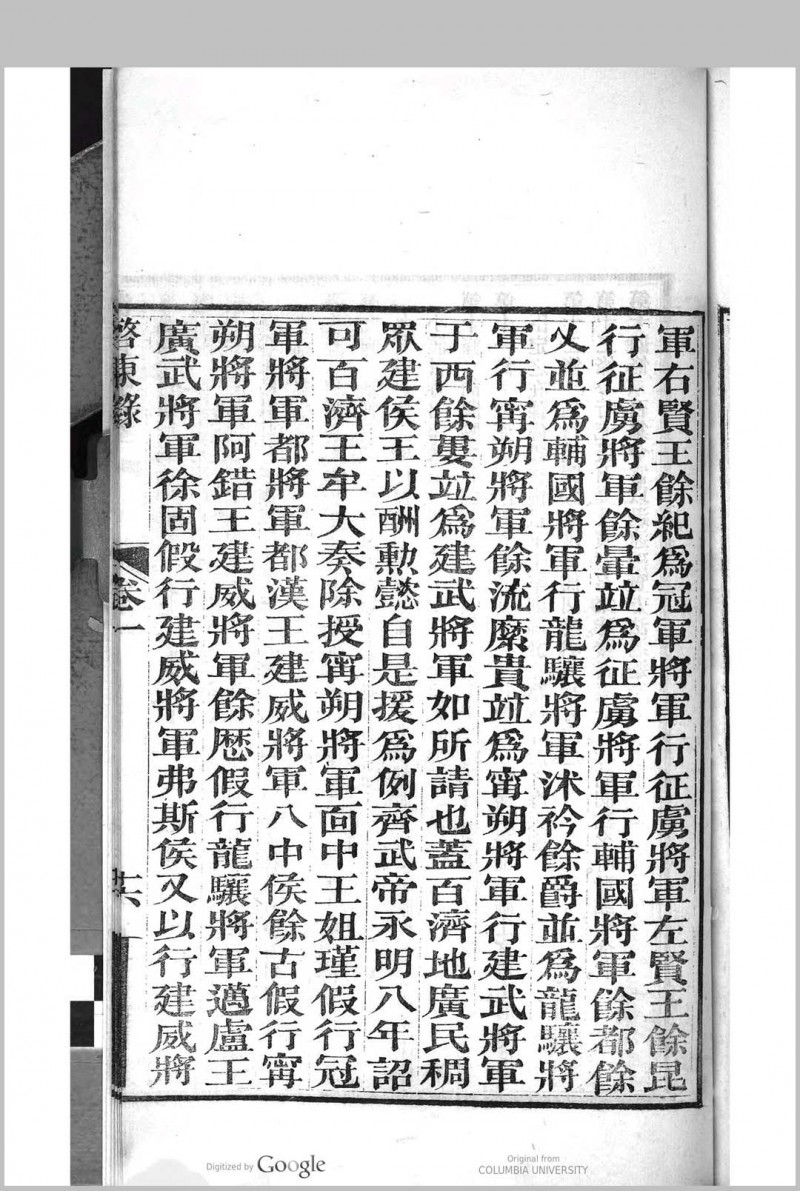 軍右賢王餘紀爲冠軍將軍行征虜將軍左賢王餘昆
行征虜將軍餘暈竝爲征虜將軍行輔國將軍餘都餘
乂並爲輔國將軍行龍驤將軍沭衿餘爵並爲龍驤將
軍行寗朔將軍餘流糜貴竝爲寗朔將軍行建武將軍
于西餘婁竝爲建武將軍如所請也蓋百濟地廣民稠
眾建侯王以酬勲懿自是援爲例齊武帝永明八年詔
可百濟王牟大奏除授寗朔將軍面中王姐瑾假行冠
軍將軍都將軍都漢王建威將軍八中侯餘古假行寗
朔將軍阿錯王建威將軍餘歷假行龍驤將軍邁盧王
廣武將軍徐固假行建威將軍弗斯侯又以行建威將
啓東錄
卷一
廿六
Digitized by Google
Original from
COLUMBIA UNIVERSITY